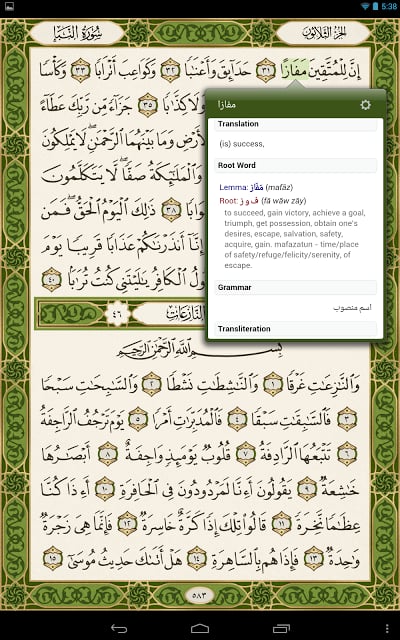 5:38
الجُزْءُ الثَّلَاثُونَ
سُورَةُ النَّبَإِ
إِنَّ لِلْمُتَّقِينَ مَفَازًا ٣١ حَدَآئِقَ وَأَعْنَٰبًا ٣٢ وَكَوَاعِبَ أَتْرَابًا ٣٣ وَكَأْسًا
وَلَا كِذَّٰبًا ٣٥ جَزَآءً مِّن رَّبِّكَ عَطَآءً
وَمَا بَيْنَهُمَا ٱلرَّحْمَٰنِ ۖ لَا يَمْلِكُونَ
وَٱلْمَلَٰٓئِكَةُ صَفًّا ۖ لَّا يَتَكَلَّمُونَ
٣٨ ذَٰلِكَ ٱلْيَوْمُ ٱلْحَقُّ ۖ فَمَن
إِنَّآ أَنذَرْنَٰكُمْ عَذَابًا قَرِيبًا يَوْمَ
ٱلْكَافِرُ يَٰلَيْتَنِى كُنتُ تُرَٰبًا ٤٠
مفازا
Translation
(is) success,
Root Word
Lemma: مَفَاز (mafāz)
Root: ف و ز (fā wāw zāy)
to succeed, gain victory, achieve a goal,
triumph, get possession, obtain one's
desires, escape, salvation, safety,
acquire, gain. mafazatun - time/place
of safety/refuge/felicity/serenity, of
escape.
Grammar
اسم منصوب
Transliteration
النَّازِعَات ٤٦
بِسْمِ ٱللَّهِ ٱلرَّحْمَٰنِ ٱلرَّحِيمِ
وَٱلنَّٰزِعَٰتِ غَرْقًا ١ وَٱلنَّٰشِطَٰتِ نَشْطًا ٢ وَٱلسَّٰبِحَٰتِ سَبْحًا
٣ فَٱلسَّٰبِقَٰتِ سَبْقًا ٤ فَٱلْمُدَبِّرَٰتِ أَمْرًا ٥ يَوْمَ تَرْجُفُ ٱلرَّاجِفَةُ
٦ تَتْبَعُهَا ٱلرَّادِفَةُ ٧ قُلُوبٌ يَوْمَئِذٍ وَاجِفَةٌ ٨ أَبْصَٰرُهَا
خَٰشِعَةٌ ٩ يَقُولُونَ أَءِنَّا لَمَرْدُودُونَ فِى ٱلْحَافِرَةِ ١٠ أَءِذَا كُنَّا
عِظَٰمًا نَّخِرَةً ١١ قَالُوا۟ تِلْكَ إِذًا كَرَّةٌ خَاسِرَةٌ ١٢ فَإِنَّمَا هِىَ زَجْرَةٌ
وَٰحِدَةٌ ١٣ فَإِذَا هُم بِٱلسَّاهِرَةِ ١٤ هَلْ أَتَىٰكَ حَدِيثُ مُوسَىٰٓ ١٥
٥٨٣